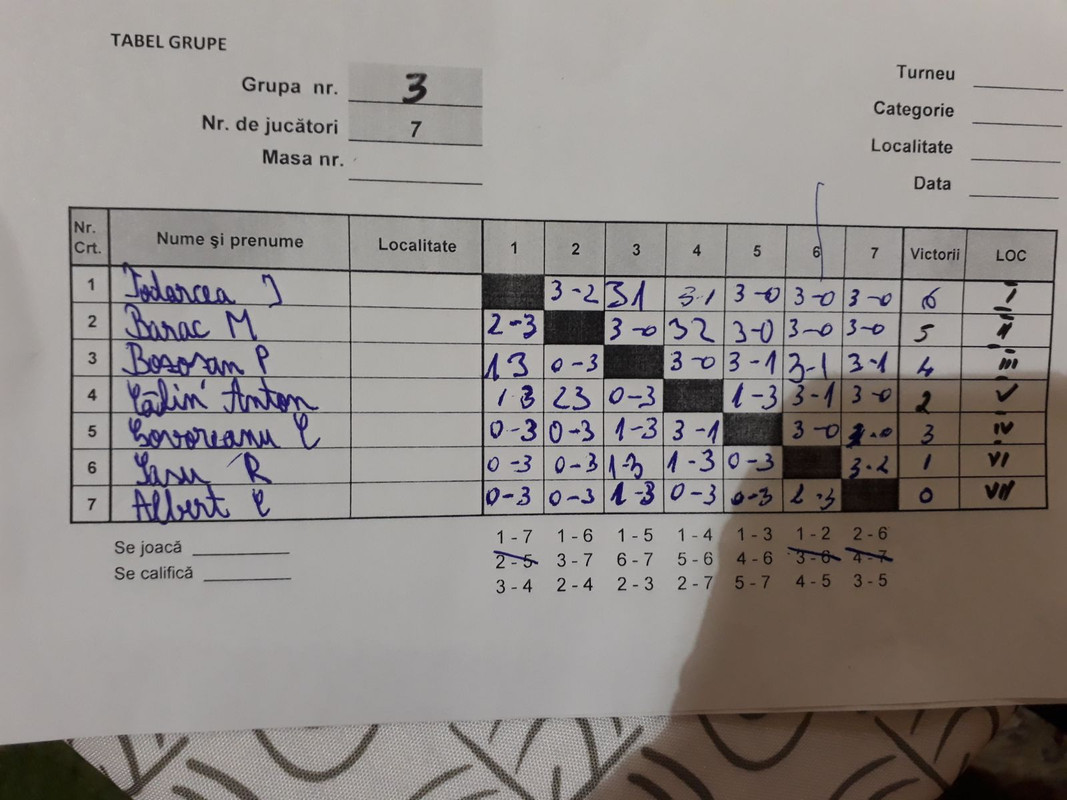 TABEL GRUPE
Grupa nr. 3
Nr. de jucători 7
Masa nr.
Turneu
Categorie
Localitate
Data
Nr. Crt. Nume și prenume Localitate 1 2 3 4 5 6 7 Victorii LOC
1 Todercea J 3-2 31 3-1 3-0 3-0 3-0 6 I
2 Barac M 2-3 3-0 32 3-0 3-0 3-0 5 II
3 Bosoran P 13 0-3 3-0 3-1 3-1 3-1 4 III
4 Călin Anton 13 23 0-3 1-3 3-1 3-0 2 V
5 Govoreanu C 0-3 0-3 1-3 3-1 3-0 3-0 3 IV
6 Sasu R 0-3 0-3 1-3 1-3 0-3 3-2 1 VI
7 Albert C 0-3 0-3 1-3 0-3 0-3 2-3 0 VII
Se joacă
Se califică
1 - 7 1 - 6 1 - 5 1 - 4 1 - 3 1 - 2 2 - 6
2 - 5 3 - 7 6 - 7 5 - 6 4 - 6 3 - 6 4 - 7
3 - 4 2 - 4 2 - 3 2 - 7 5 - 7 4 - 5 3 - 5